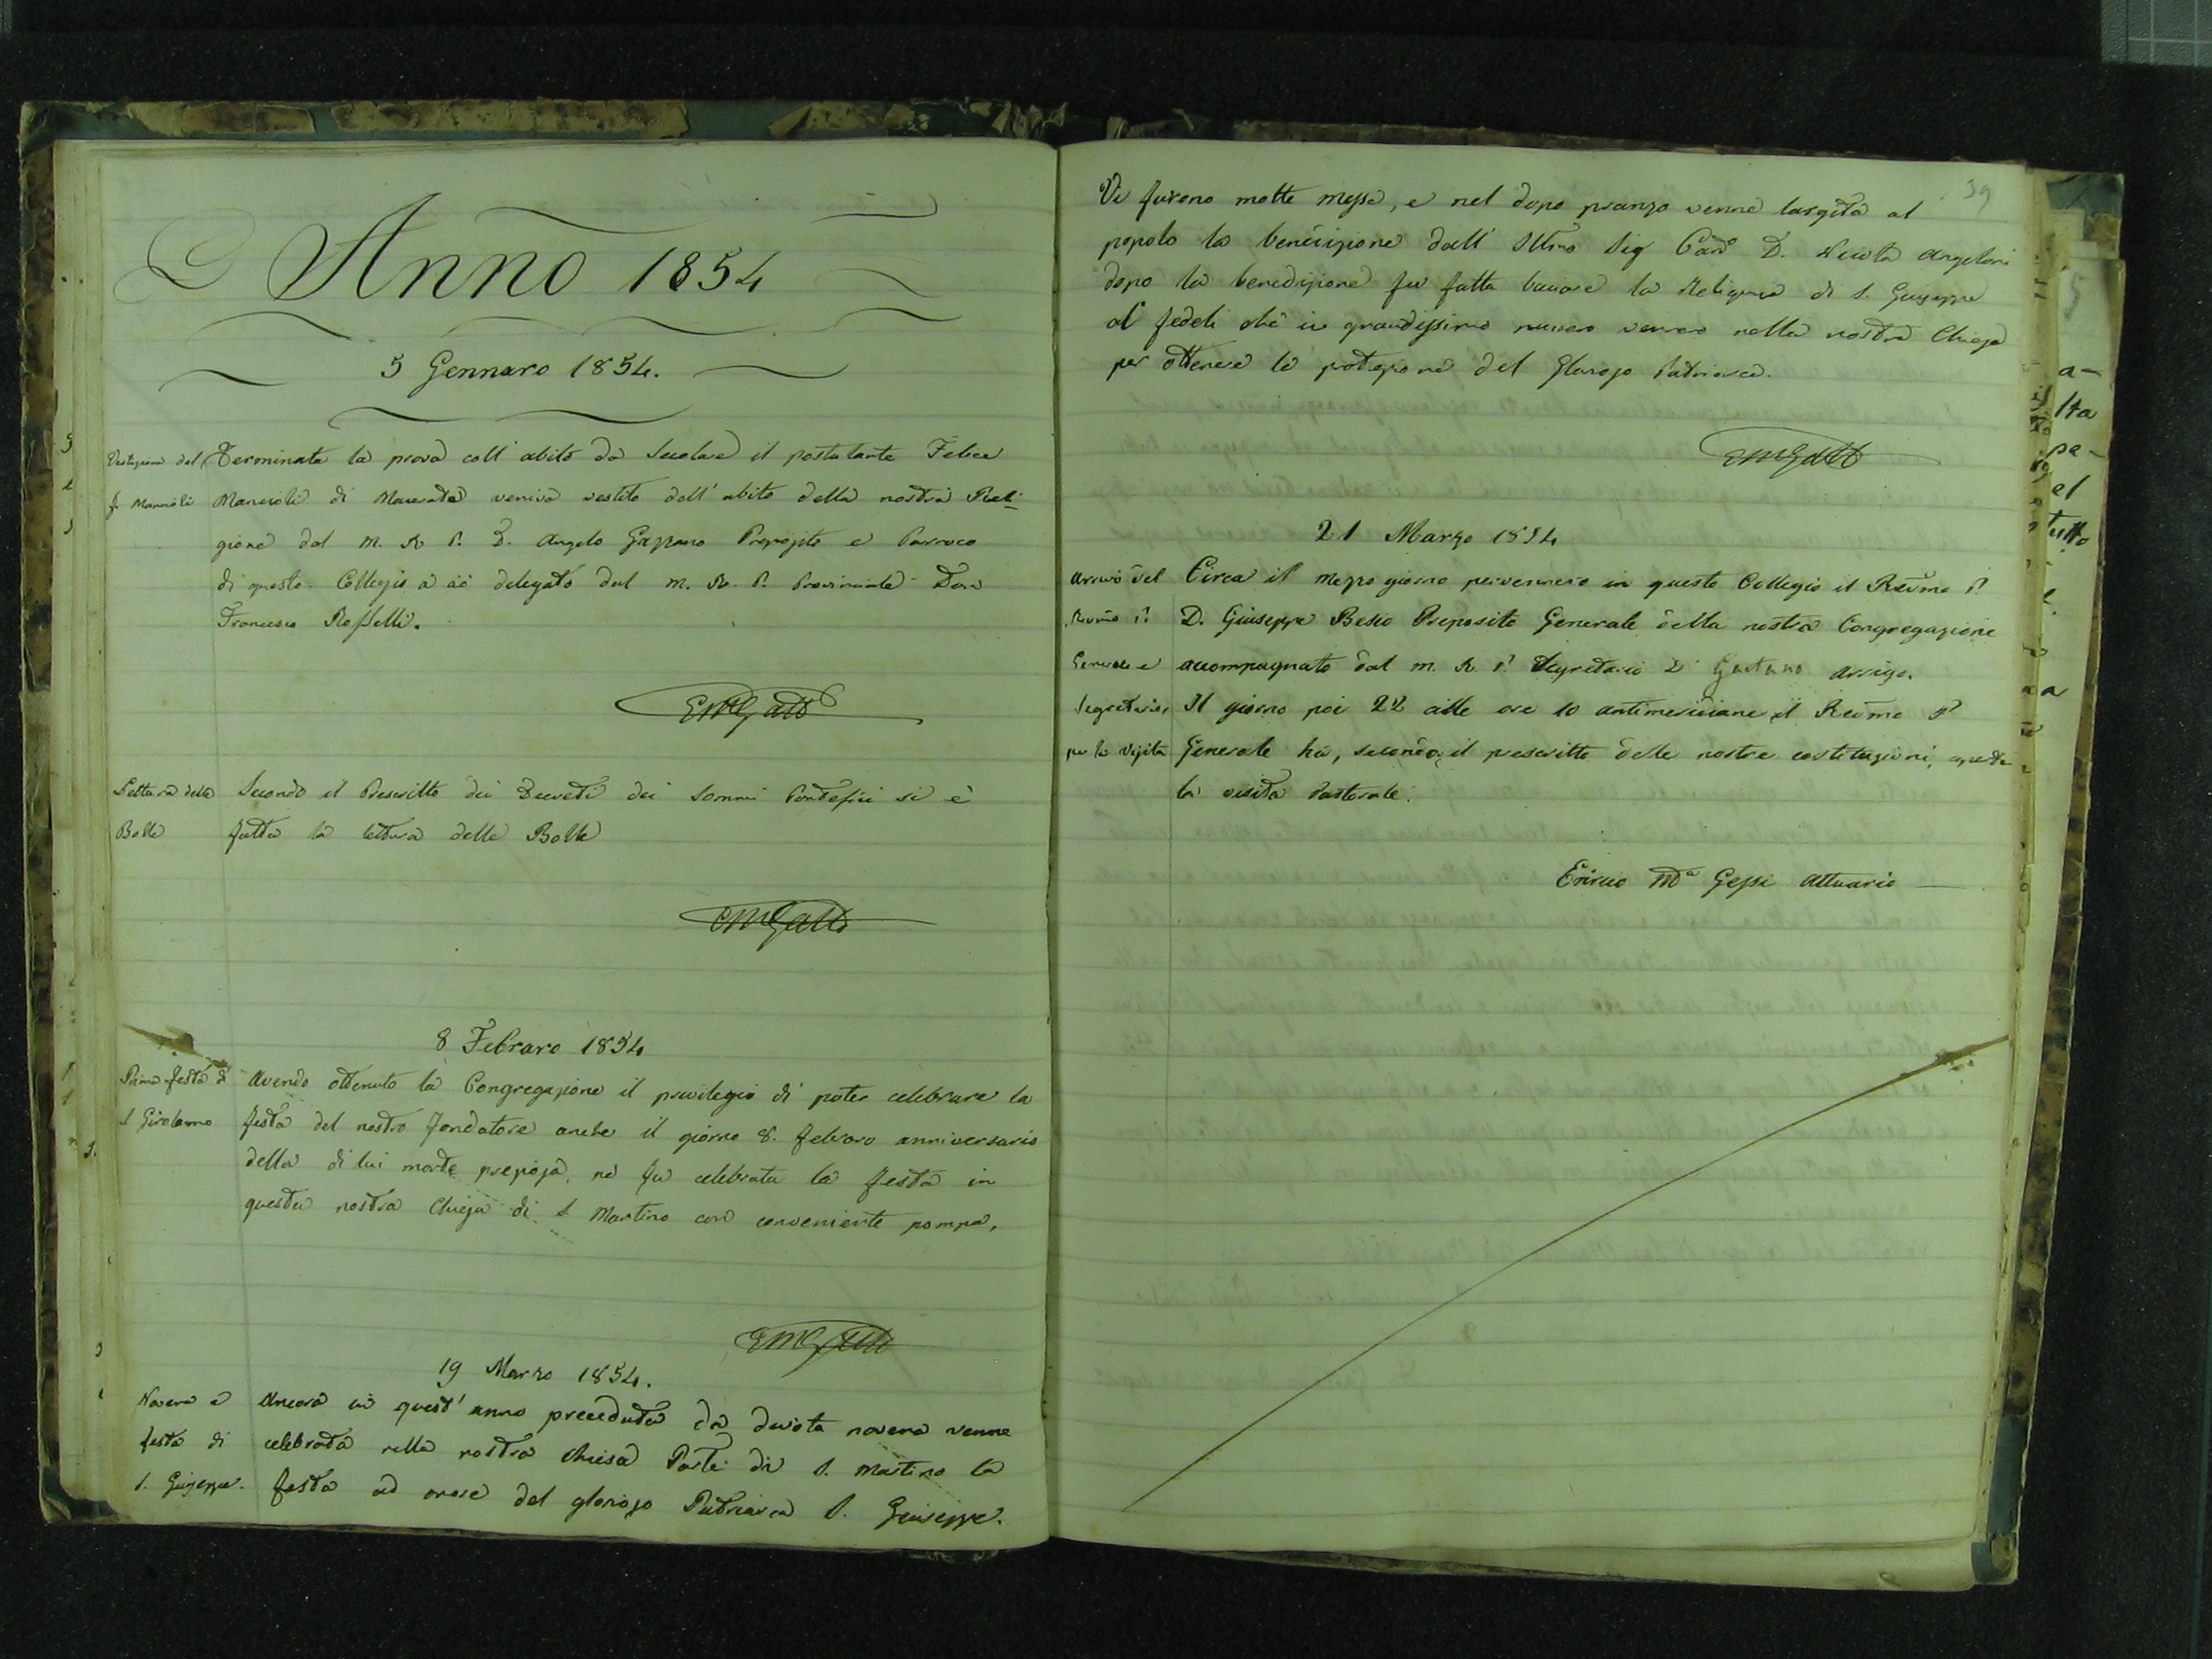 Anno 1854
5 Gennaro 1854.
Vestizione del Terminata la prova coll' abito da Secolare il postulante Felice
f. Marcioli Marcioli di Macerata veniva vestito dell' abito della nostra Reli-
gione dal M. R. P. D. Angelo Gazzano Preposito e Parroco
di questo Collegio a ciò delegato dal M. R. P. Provinciale Don
Francesco Rosselli.
EMGatti
Lettura delle Secondo il Prescritto dei Decreti dei Sommi Pontefici si è
Bolle fatta la lettura delle Bolle
EMGatti
8 Febraro 1854
Prima festa di Avendo ottenuto la Congregazione il privilegio di poter celebrare la
S Girolamo festa del nostro fondatore anche il giorno 8. febraro anniversario
della di lui morte preziosa, ne fu celebrata la festa in
questa nostra Chiesa di S Martino con conveniente pompa.
EMGatti
19 Marzo 1854.
Novena e Ancora in quest' anno preceduta da devota novena venne
festa di celebrata nella nostra Chiesa Parle di S. Martino la
S. Giuseppe. festa ad onore del glorioso Patriarca S. Giuseppe.
39
Vi furono molte messe, e nel dopo pranzo venne largita al
popolo la benedizione dall' Illmo Sig Can° D. Angeloni
dopo la benedizione fu fatta baciare la Reliquia di S. Giuseppe
ai fedeli che in grandissimo numero vennero nella nostra Chiesa
per ottenere la protezione del Glorioso Patriarca.
EMGatti
21 Marzo 1854
Arrivo del Circa il mezzo giorno pervennero in questo Collegio il Revmo P.
Revmo P. D. Giuseppe Besio Preposito Generale della nostra Congregazione
Generale e accompagnato dal m. R. P. Segretario D Gaetano Arrigo.
Segretario, Il giorno poi 22 alle ore 10 antimeridiane il Revmo P.
per la Visita Generale ha, secondo il prescritto delle nostre costituzioni, aperta
la visita Pastorale.
Enrico Ma Gessi Attuario